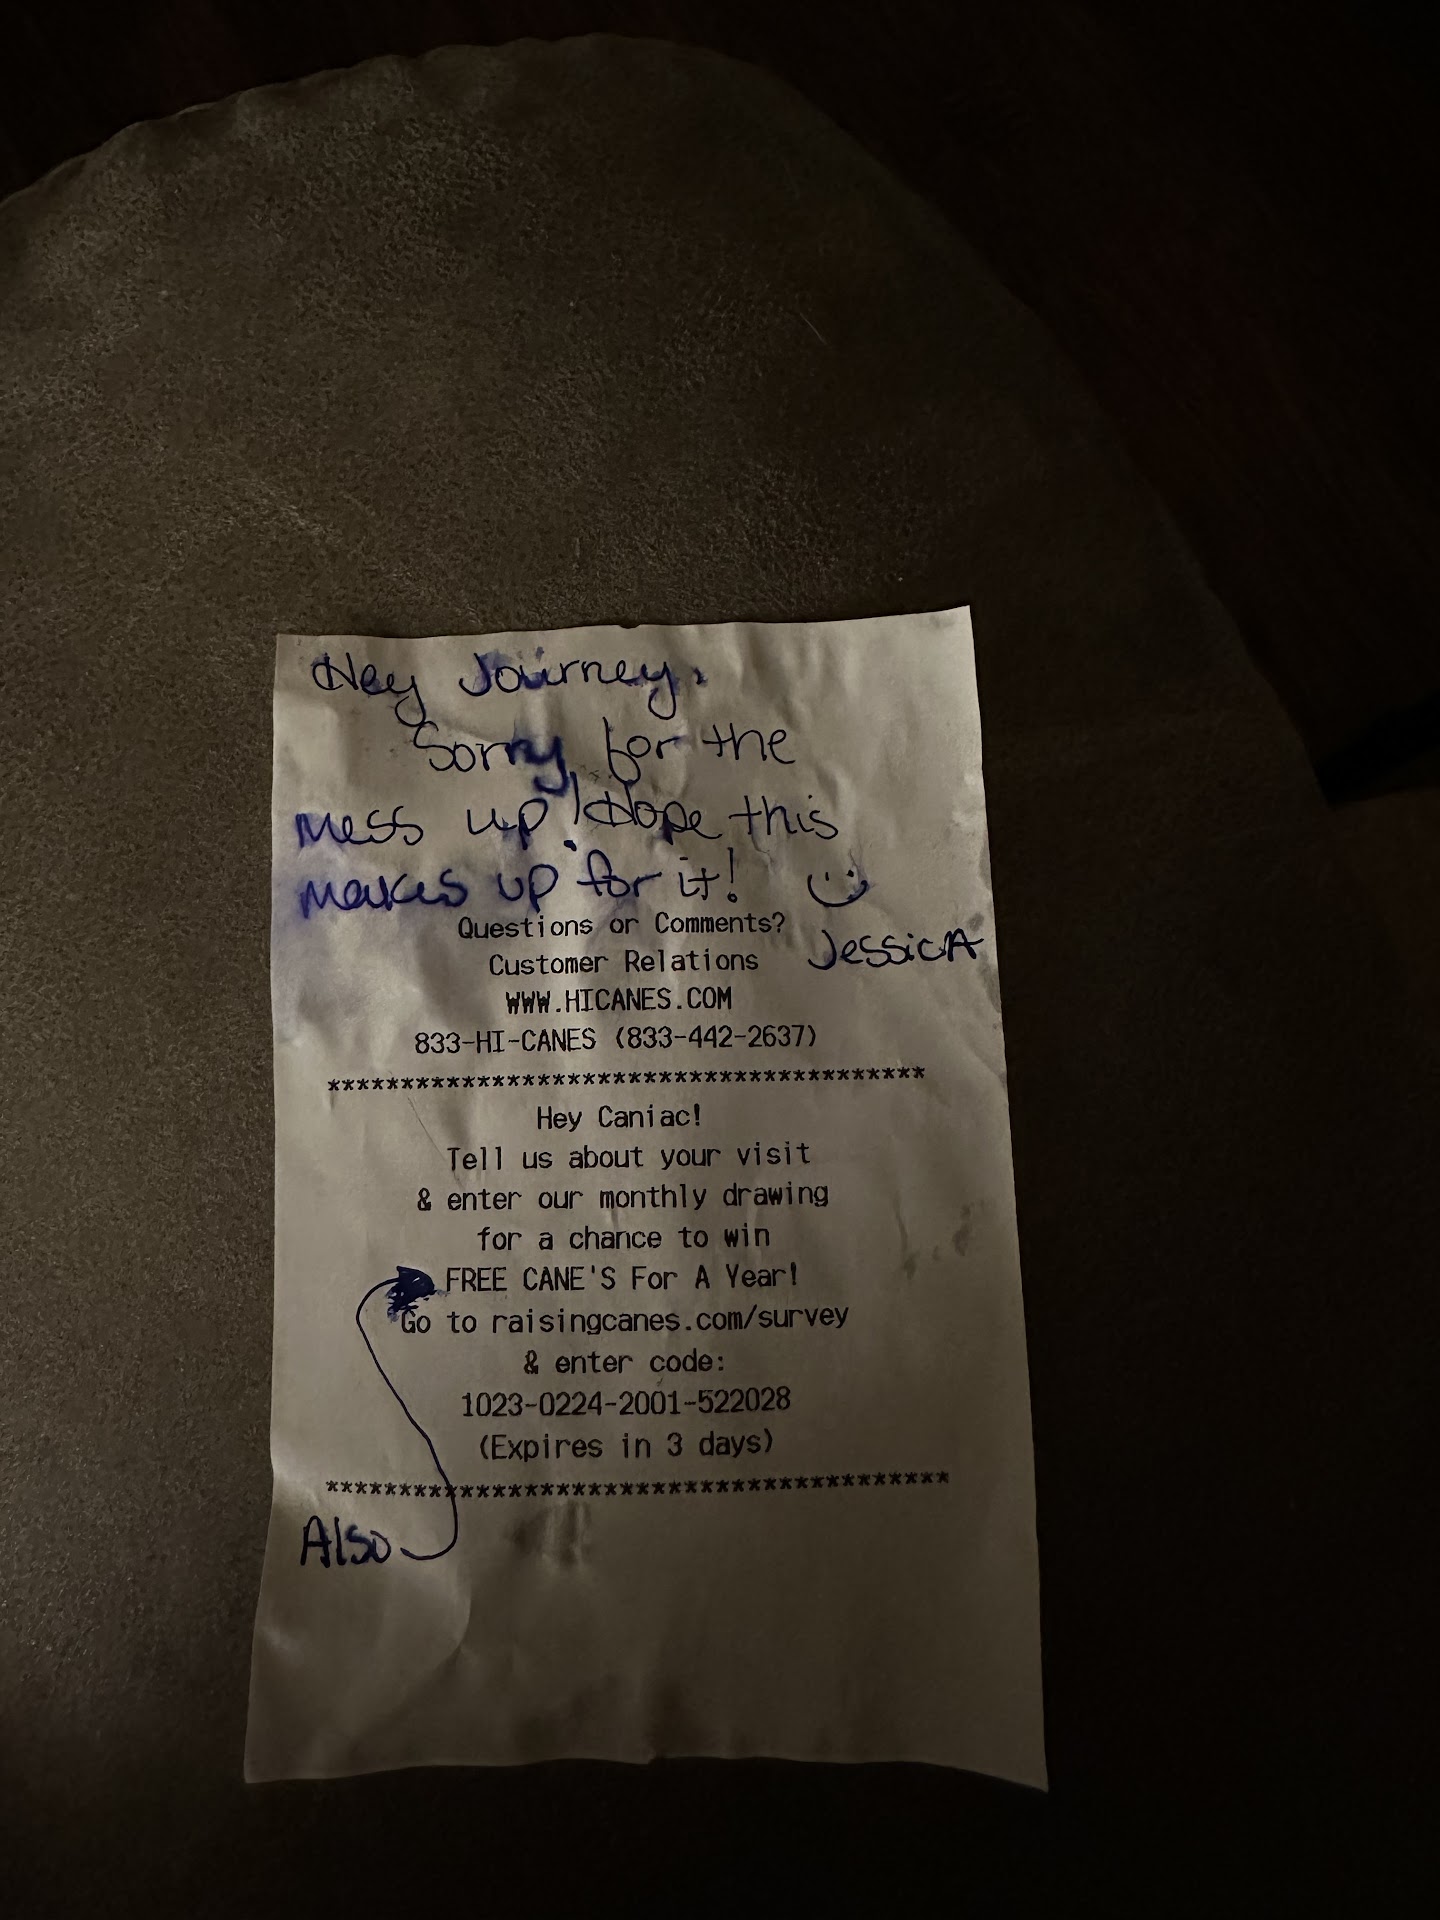 Hey Journey,
Sorry for the
mess up! Hope this
makes up for it!
Questions or Comments?
Customer Relations
JessicA
WWW.HICANES.COM
833-HI-CANES (833-442-2637)
****************************************
Hey Caniac!
Tell us about your visit
& enter our monthly drawing
for a chance to win
FREE CANE'S For A Year!
Go to raisingcanes.com/survey
& enter code:
1023-0224-2001-522028
(Expires in 3 days)
****************************************
Also